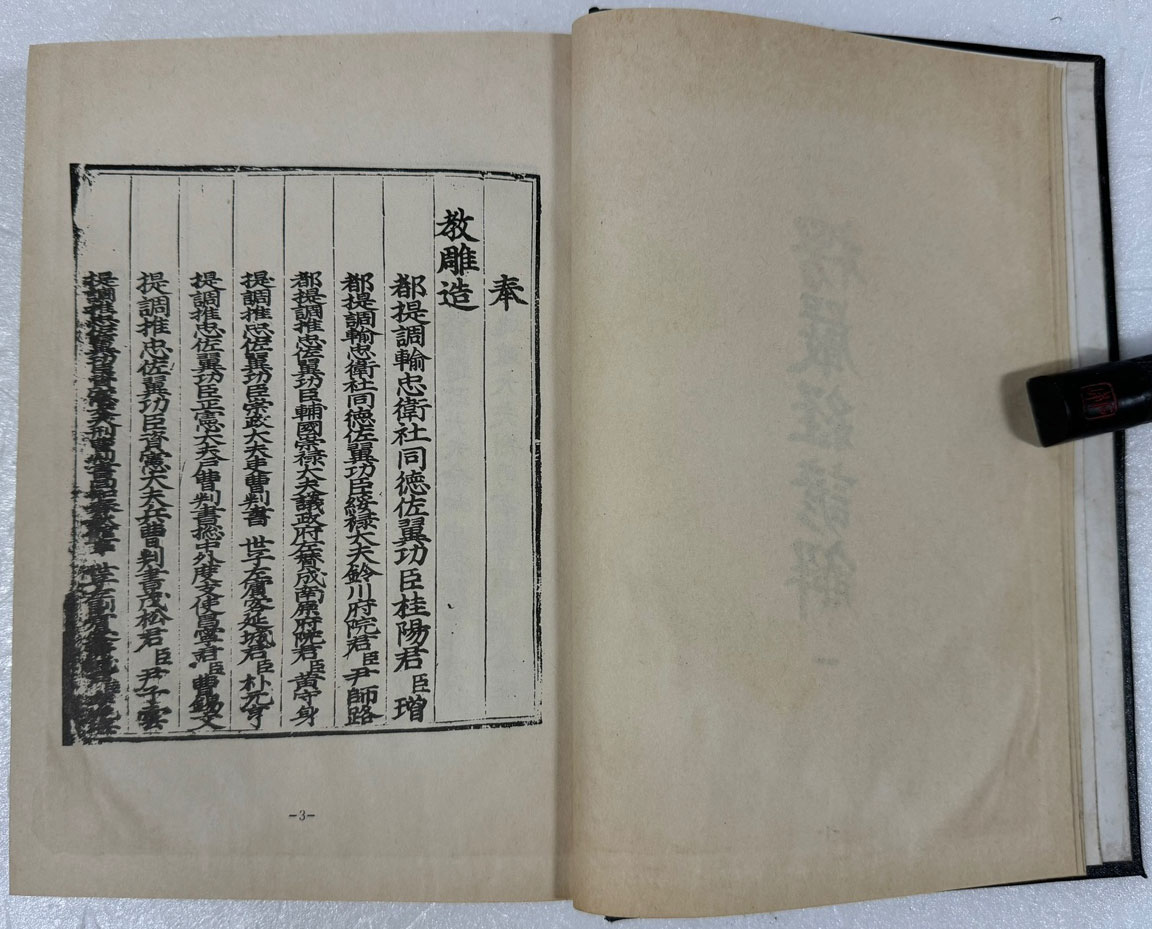 奉
教雕造
都提調輸忠衛社同德佐翼功臣桂陽君臣璔
都提調輸忠衛社同德佐翼功臣綏祿大夫鈴川府院君臣尹師路
都提調推忠佐翼功臣輔國崇祿大夫議政府左贊成南原府院君臣黃守身
提調推忠佐翼功臣崇政大夫吏曹判書 世子左賓客延城君臣朴元亨
提調推忠佐翼功臣正憲大夫戶曹判書摠中外度支使昌寧君臣曹錫文
提調推忠佐翼功臣資憲大夫兵曹判書茂松君臣尹子雲
提調推忠佐翼功臣
-3-